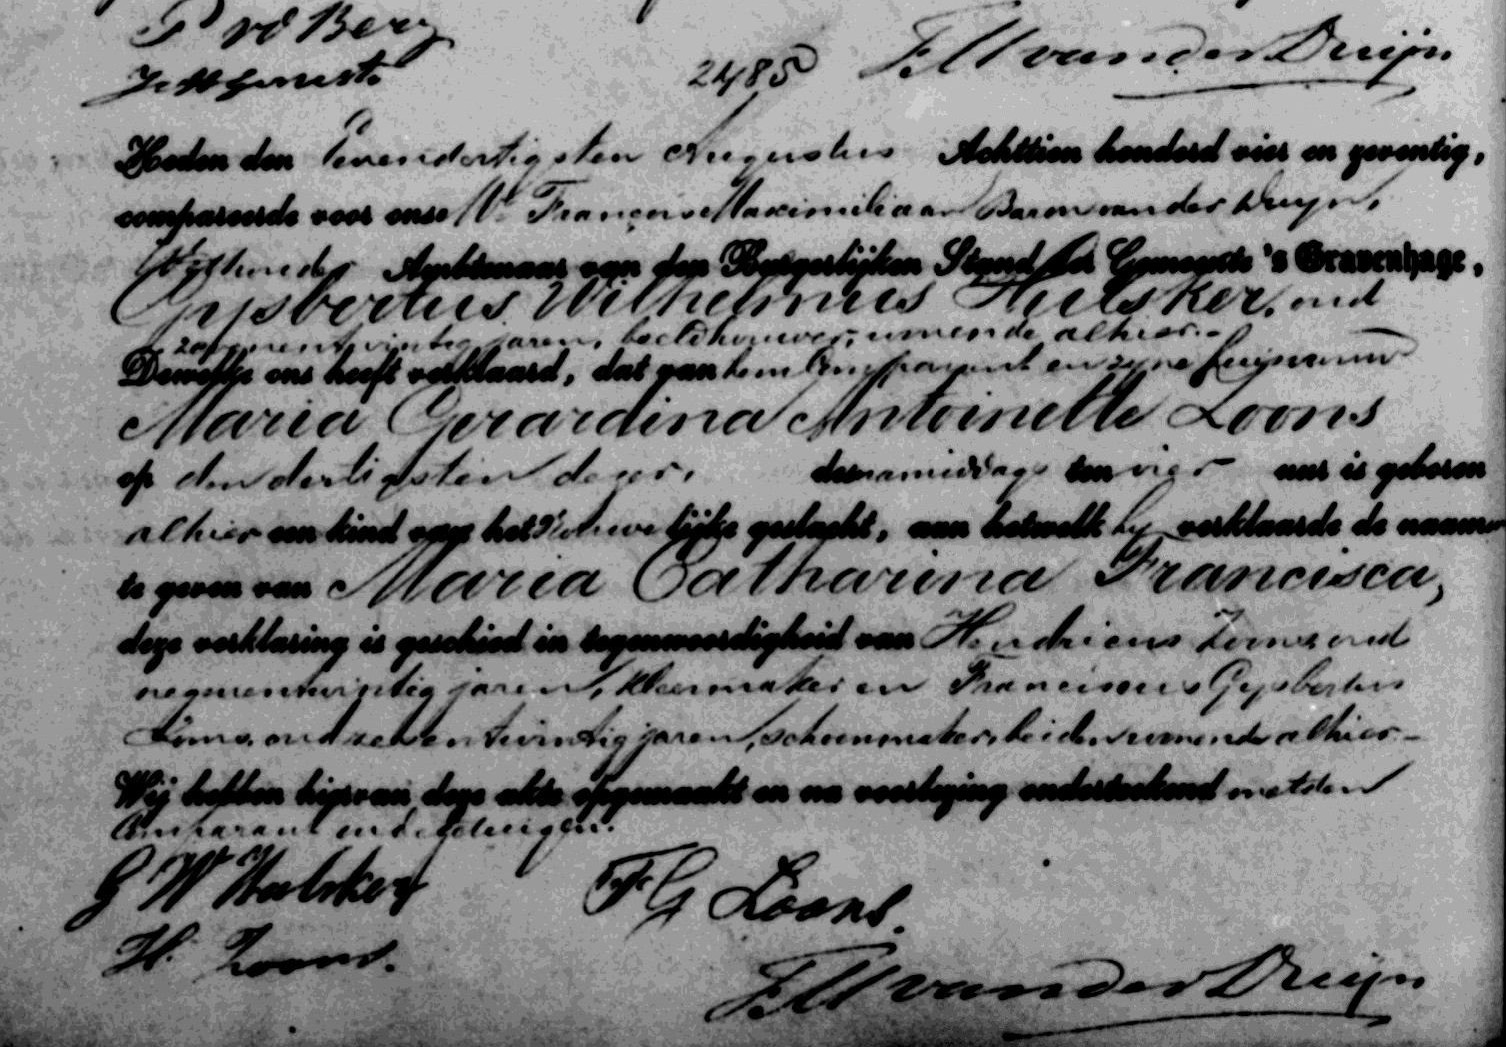 P vd Berg
2485
F M van der Duijn
Heden den Eenendertigsten Augustus Achttien honderd vier en zeventig,
compareerde voor ons Mr. François Maximiliaan Baron van der Duijn,
Wethouder Ambtenaar van den Burgerlijken Stand der Gemeente 's Gravenhage,
Gijsbertus Wilhelmus Hulsker, oud
zevenentwintig jaren, beeldhouwer, wonende alhier.-
Dewelke ons heeft verklaard, dat van hem Comparant en zijne huisvrouw
Maria Gerardina Antoinette Loons
op den dertigsten dezer, des namiddags ten vier ure is geboren
alhier een kind van het vrouwelijke geslacht, aan hetwelk hij verklaarde de naamen
te geven van Maria Catharina Francisca,
deze verklaring is geschied in tegenwoordigheid van Hendricus Loons, oud
negenentwintig jaren, kleermaker en Franciscus Gijsbertus
Loons, oud zevenentwintig jaren, schoenmaker, beiden wonende alhier.-
Wij hebben hiervan deze akte opgemaakt en na voorlezing onderteekend met den
Comparant en de getuigen.
G W Hulsker F G Loons.
H. Loons.
F M van der Duijn